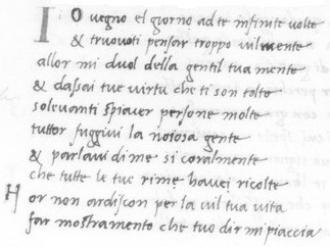 IO vegno el giorno ad te infinite volte
& truovoti pensar troppo vilmente
allor mi duol della gentil tua mente
& dassai tue virtu che ti son tolte
solevanti spiaver persone molte
tuttor fuggivi la noiosa gente
& parlavi di me si coralmente
che tutte le tue rime havei ricolte
Hor non ardiscon per la vil tua vita
far mostramento che tuo dir mi piaccia